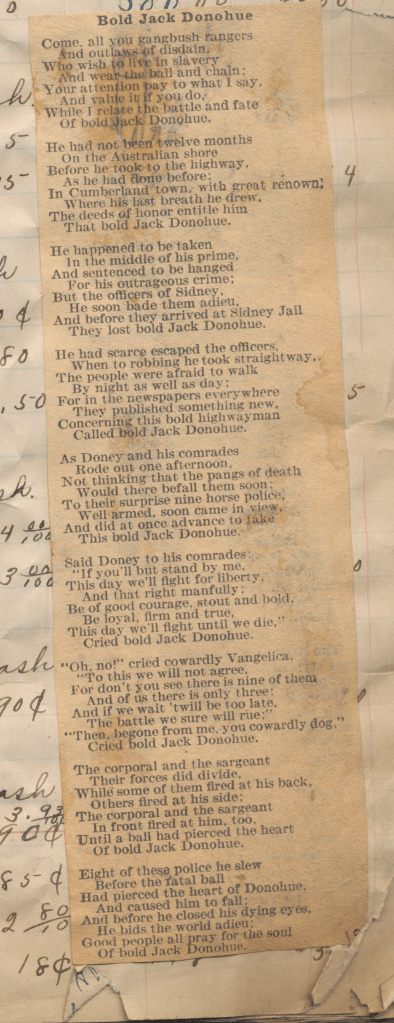 Bold Jack Donohue
Come, all you gangbush rangers
And outlaws of disdain,
Who wish to live in slavery
And wear the ball and chain;
Your attention pay to what I say,
And value it if you do,
While I relate the battle and fate
Of bold Jack Donohue.
He had not been twelve months
On the Australian shore
Before he took to the highway,
As he had done before;
In Cumberland town, with great renown,
Where his last breath he drew,
The deeds of honor entitle him
That bold Jack Donohue.
He happened to be taken
In the middle of his prime,
And sentenced to be hanged
For his outrageous crime;
But the officers of Sidney,
He soon bade them adieu,
And before they arrived at Sidney Jail
They lost bold Jack Donohue.
He had scarce escaped the officers,
When to robbing he took straightway,
The people were afraid to walk
By night as well as day;
For in the newspapers everywhere
They published something new,
Concerning this bold highwayman
Called bold Jack Donohue.
As Doney and his comrades
Rode out one afternoon,
Not thinking that the pangs of death
Would there befall them soon;
To their surprise nine horse police,
Well armed, soon came in view,
And did at once advance to take
This bold Jack Donohue.
Said Doney to his comrades:
"If you'll but stand by me,
This day we'll fight for liberty,
And that right manfully;
Be of good courage, stout and bold,
Be loyal, firm and true,
This day we'll fight until we die,"
Cried bold Jack Donohue.
"Oh, no!" cried cowardly Vangelica,
"To this we will not agree,
For don't you see there is nine of them
And of us there is only three;
And if we wait 'twill be too late,
The battle we sure will rue;"
"Then, begone from me, you cowardly dog,"
Cried bold Jack Donohue.
The corporal and the sargeant
Their forces did divide,
While some of them fired at his back,
Others fired at his side;
The corporal and the sargeant
In front fired at him, too,
Until a ball had pierced the heart
Of bold Jack Donohue.
Eight of these police he slew
Before the fatal ball
Had pierced the heart of Donohue,
And caused him to fall;
And before he closed his dying eyes,
He bids the world adieu;
Good people all pray for the soul
Of bold Jack Donohue.
4
5
80
.50
ash
90¢
ash
3.93
90¢
85¢
2 80/10
18¢